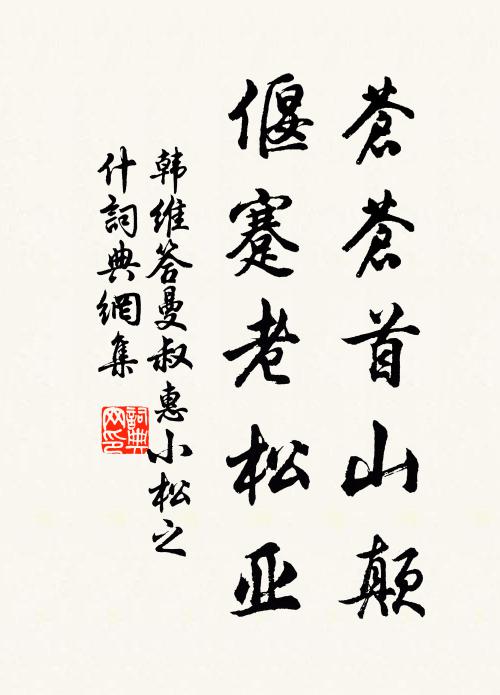 蒼蒼首山顛
偃蹇老松亚
韩維答曼叔惠小松之
什詞典網集
詞典
网印